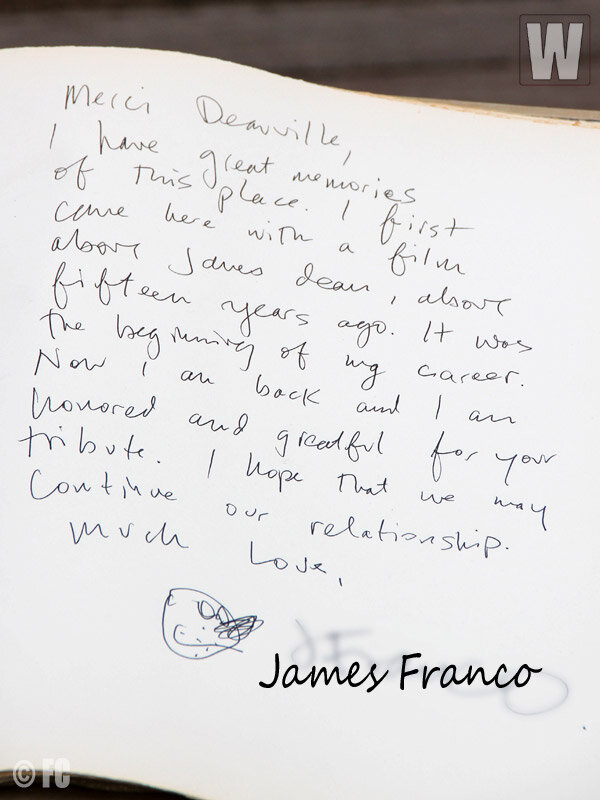 W
Merci Deauville,
I have great memories
of this place. I first
came here with a film
about James Dean, about
fifteen years ago. It was
the beginning of my career.
Now I am back and I am
honored and greatful for your
tribute. I hope that we may
continue our relationship.
Much Love,
James Franco
© FC